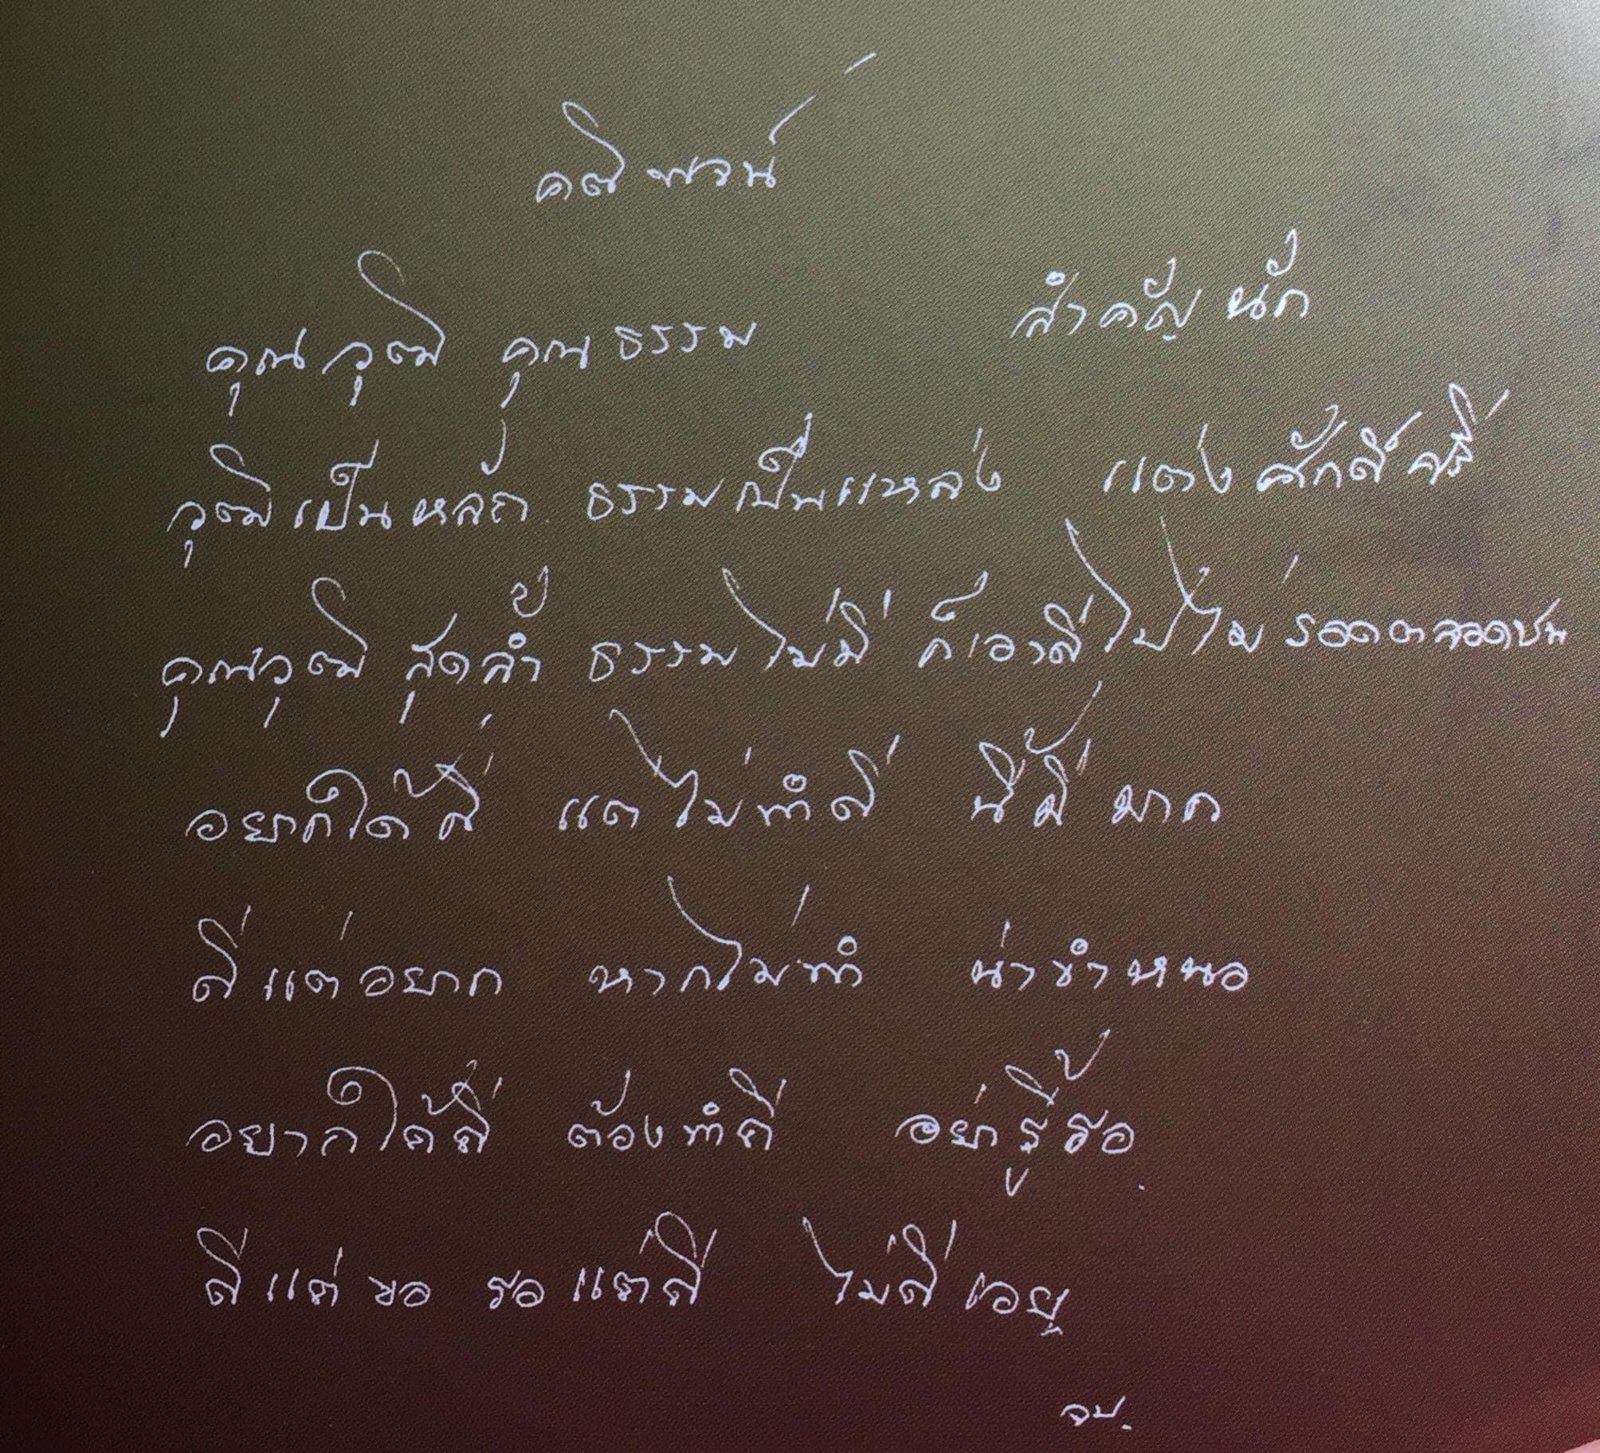 คติพจน์
คุณวุฒิ คุณธรรม สำคัญนัก
วุฒิเป็นหลัก ธรรมเป็นแหล่ง แต่งศักดิ์ศรี
คุณวุฒิ สุดล้ำ ธรรมไม่มี ก็เอาดีไปไม่รอดตลอดชน
อยากได้ดี แต่ไม่ทำดี นี้มีมาก
ดีแต่อยาก หากไม่ทำ น่าขำหนอ
อยากได้ดี ต้องทำดี อย่ารีรอ
ดีแต่ขอ รอแต่ดี ไม่ดีเอย
จป.